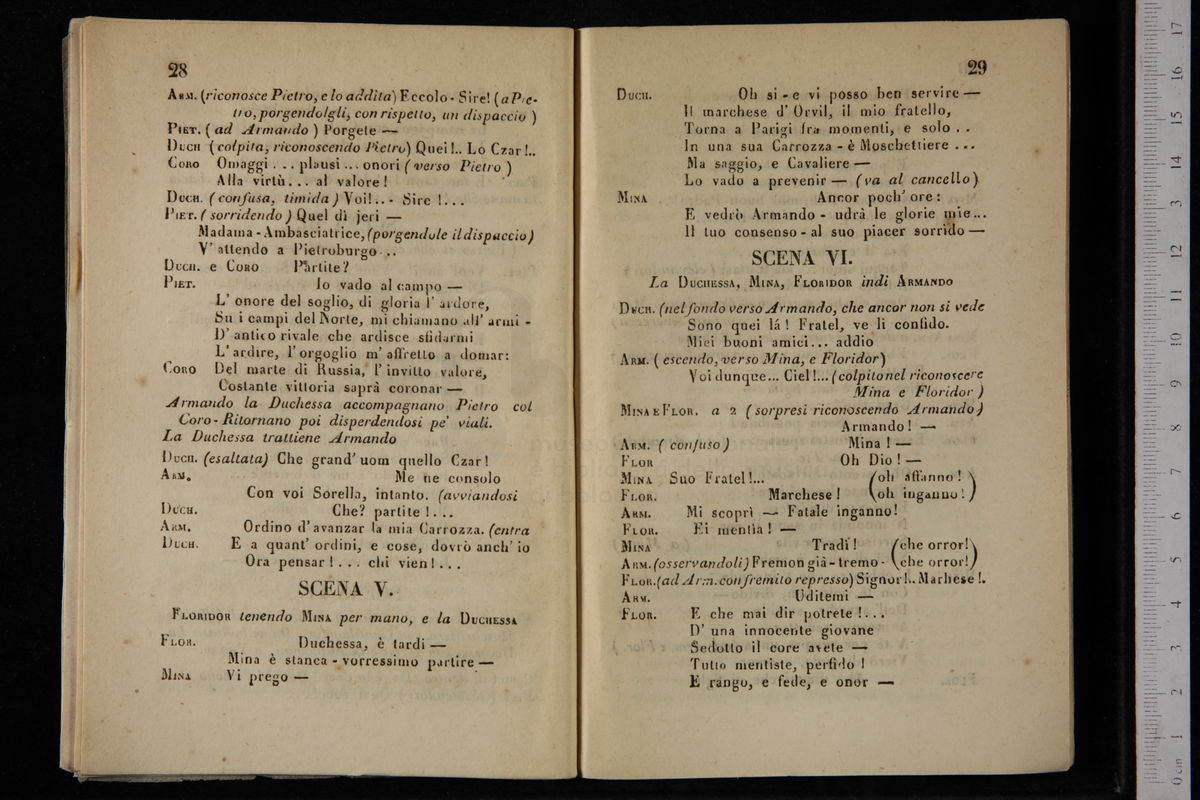 28
ARM. (riconosce Pietro, e lo addita) Eccolo - Sire! (a Pie-
tro, porgendolgli, con rispetto, un dispaccio )
PIET. ( ad Armando ) Porgete —
DUCH ( colpita, riconoscendo Pietro) Quei!.. Lo Czar!..
CORO Omaggi . . . plausi ... onori ( verso Pietro )
Alla virtù... al valore!
DUCH. ( confusa, timida ) Voi!.. - Sire !...
PIET. ( sorridendo ) Quel dì jeri —
Madama - Ambasciatrice, (porgendole il dispaccio)
V' attendo a Pietroburgo ..
DUCH. e CORO Partite?
PIET. Io vado al campo —
L' onore del soglio, di gloria l' ardore,
Su i campi del Norte, mi chiamano all' armi -
D' antico rivale che ardisce sfidarmi
L' ardire, l' orgoglio m' affretto a domar:
CORO Del marte di Russia, l' invitto valore,
Costante vittoria saprà coronar —
Armando la Duchessa accompagnano Pietro col
Coro - Ritornano poi disperdendosi pe' viali.
La Duchessa trattiene Armando
DUCH. (esaltata) Che grand' uom quello Czar!
ARM. Me ne consolo
Con voi Sorella, intanto. (avviandosi
DUCH. Che? partite !...
ARM. Ordino d' avanzar la mia Carrozza. (entra
DUCH. E a quant' ordini, e cose, dovrò anch' io
Ora pensar! ... chi vien! ...
SCENA V.
FLORIDOR tenendo MINA per mano, e la DUCHESSA
FLOR. Duchessa, è tardi —
Mina è stanca - vorressimo partire —
MINA Vi prego —
29
DUCH. Oh si - e vi posso ben servire —
Il marchese d' Orvil, il mio fratello,
Torna a Parigi fra momenti, e solo . .
In una sua Carrozza - è Moschettiere ...
Ma saggio, e Cavaliere —
Lo vado a prevenir — (va al cancello)
MINA Ancor poch' ore :
E vedrò Armando - udrà le glorie mie...
Il tuo consenso - al suo piacer sorrido —
SCENA VI.
La DUCHESSA, MINA, FLORIDOR indi ARMANDO
DUCH. (nel fondo verso Armando, che ancor non si vede
Sono quei là ! Fratel, ve li confido.
Miei buoni amici... addio
ARM. ( escendo, verso Mina, e Floridor)
Voi dunque... Ciel !... (colpito nel riconoscere
Mina e Floridor )
MINA E FLOR. a 2 ( sorpresi riconoscendo Armando )
Armando! —
ARM. ( confuso ) Mina ! —
FLOR Oh Dio ! —
MINA Suo Fratel!... (oh affanno ! )
FLOR. Marchese ! (oh inganno ! )
ARM. Mi scoprì — Fatale inganno!
FLOR. Ei mentìa ! —
MINA Tradi ! (che orror!)
ARM. (osservandoli) Fremon già - tremo - (che orror!)
FLOR. (ad Arm. con fremito represso) Signor!.. Marhese !.
ARM. Uditemi —
FLOR. E che mai dir potrete !...
D' una innocente giovane
Sedotto il core avete —
Tutto mentiste, perfido !
E rango, e fede, e onor —